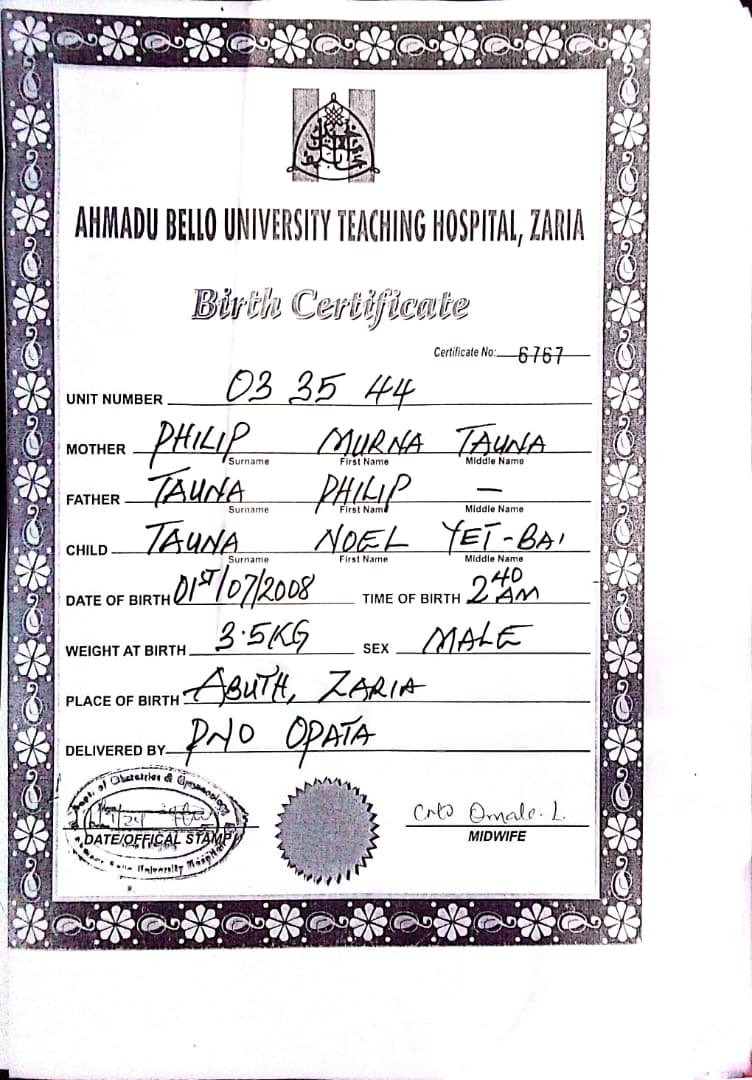 AHMADU BELLO UNIVERSITY TEACHING HOSPITAL, ZARIA
Birth Certificate
Certificate No: 6767
UNIT NUMBER 03 35 44
MOTHER PHILIP MURNA TAUNA
Surname First Name Middle Name
FATHER TAUNA PHILIP —
Surname First Nam Middle Name
CHILD TAUNA NOEL YET-BAI
Surname First Name Middle Name
DATE OF BIRTH 01ST/07/2008 TIME OF BIRTH 2 40 AM
WEIGHT AT BIRTH 3.5KG SEX MALE
PLACE OF BIRTH ABUTH, ZARIA
DELIVERED BY PNO OPATA
Dept. of Obstetrics & Gynaecology
DATE/OFFICAL STAMP
University Hospital
Omale. L.
MIDWIFE